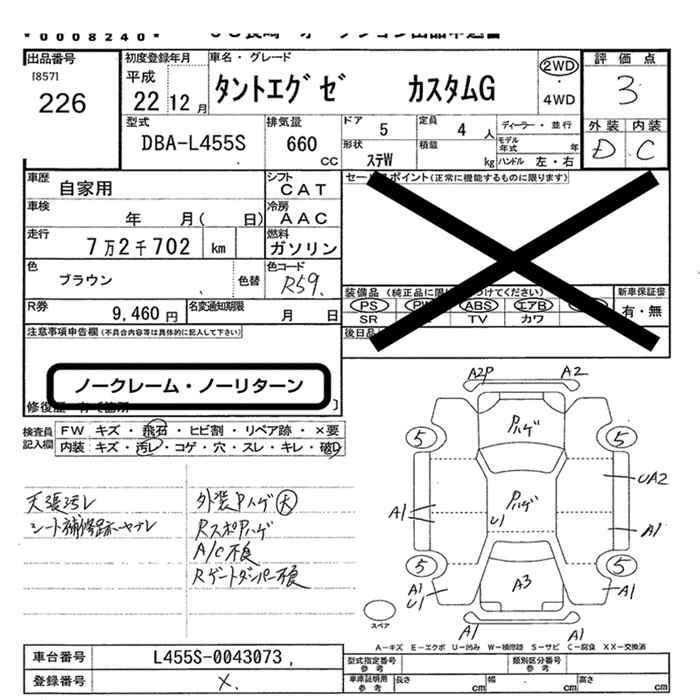 *0008240*
出品番号
[857]
226
初度登録年月
平成
22 12月
車名・グレード
タントエグゼ カスタムG
2WD
・
4WD
評価点
3
外装 内装
D C
型式
DBA-L455S
排気量
660
CC
ドア 5
定員 4 人
形状 ステW
積載 kg
ディーラー・並行
モデル年式 年
ハンドル 左・右
車歴 自家用
シフト CAT
車検 年 月( 日)
冷房 AAC
走行 7万2千702 km
燃料 ガソリン
色 ブラウン 色替
色コード R59
R券 9,460円
名変通知期限 月 日
注意事項申告欄(不具合内容等は具体的に記入して下さい)
ノークレーム・ノーリターン
セールスポイント(正常に機能するものに限ります)
装備品
PS ABS エアB
SR TV カワ
新車保証書
有・無
後日品
検査員記入欄
FW キズ・飛石・ヒビ割・リペア跡・×要
内装 キズ・汚レ・コゲ・穴・スレ・キレ・破レ
天張汚レ
シート補修跡・ヤブレ
外装Pハゲ大
RスポPハゲ
A/C不良
Rゲートダンパー不良
A2P A2
Pハゲ
5 5
Pハゲ
U1
UA2
A1 A1
5 5
A3
A1 U1 A1
A1 A1
スペア
A-キズ E-エクボ U-凹み W-補修跡 S-サビ C-腐食 XX-交換済
車台番号 L455S-0043073
登録番号 X.
型式指定番号 参考
類別区分番号 参考
車庫証明用 参考
長さ cm 幅 cm 高さ cm